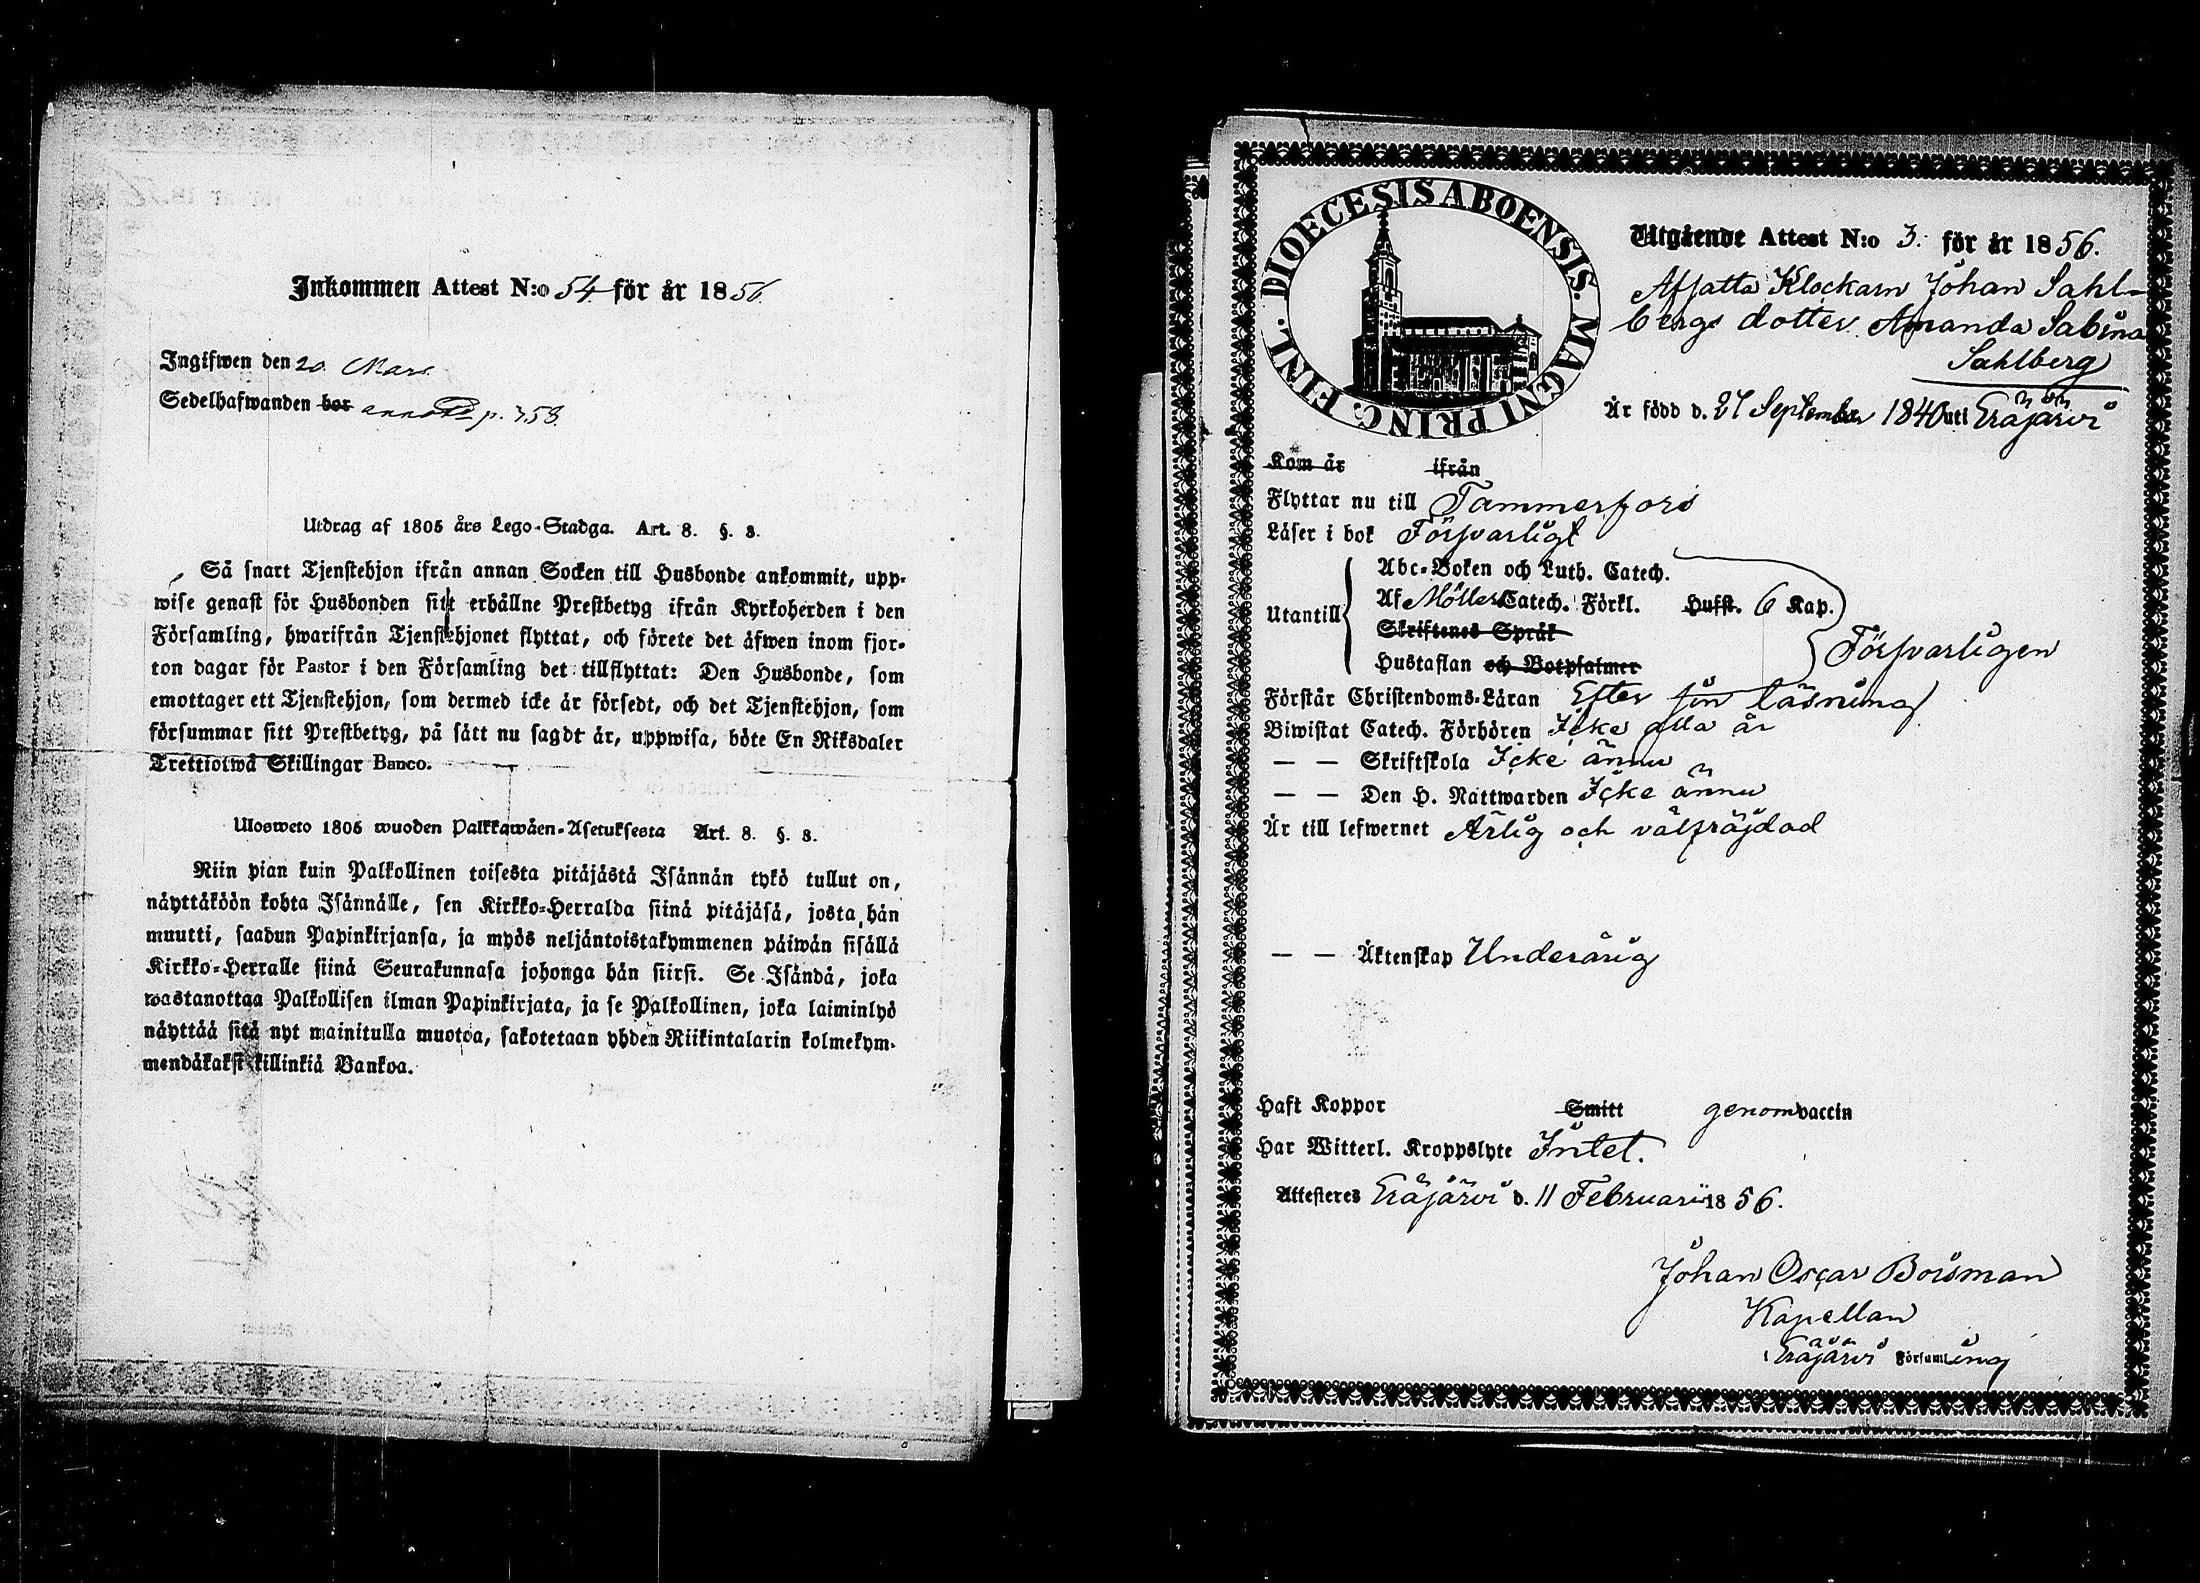 Inkommen Attest N:o 54 för år 1856.
Ingifwen den 20 Mars.
Sedelhafwanden bor annot. p. 358.
Utdrag af 1805 års Lego-Stadga. Art. 8. §. 3.
Så snart Tjenstehjon ifrån annan Socken till Husbonde ankommit, upp-
wise genast för Husbonden sitt erhållne Prestbetyg ifrån Kyrkoherden i den
Församling, hwarifrån Tjenstehjonet flyttat, och förete det äfwen inom fjor-
ton dagar för Pastor i den Församling det tillflyttat: Den Husbonde, som
emottager ett Tjenstehjon, som dermed icke är försedt, och det Tjenstehjon, som
försummar sitt Prestbetyg, på sätt nu sagdt är, uppwisa, böte En Riksdaler
Trettiotwå Skillingar Banco.
Ulosweto 1805 wuoden Palkkawäen-Asetuksesta Art. 8. §. 3.
Niin pian kuin Palkollinen toisesta pitäjästä Isännän tykö tullut on,
näyttäköön kohta Isännälle, sen Kirkko-Herralda siinä pitäjäsä, josta hän
muutti, saadun Papinkirjansa, ja myös neljäntoistakymmenen päiwän sisällä
Kirkko-Herralle siinä Seurakunnasa johonga hän siirsi. Se Isändä, joka
wastanottaa Palkollisen ilman Papinkirjata, ja se Palkollinen, joka laiminlyö
näyttää sitä nyt mainitulla muotoa, sakotetaan yhden Riikintalarin kolmekym-
mendäkaksi killinkiä Bankoa.
DIOECESIS ABOENSIS. MAGNI PRINC. FINL.
Utgående Attest N:o 3. för år 1856.
Afsatta Klockarn Johan Sahl-
bergs dotter Amanda Sabina
Sahlberg
Är född d. 27 September 1840 uti Eräjärvi
Kom år ifrån
Flyttar nu till Tammerfors
Läser i bok Försvarligt
Abc-Boken och Luth. Catech.
Utantill Af Möllers Catech. Förkl. Hufst. 6 Kap.
Skriftenes Språk
Hustaflan och Botpsalmer Försvarligen
Förstår Christendoms-Läran Efter sin läsning
Biwistat Catech. Förhören Icke alla år
— — Skriftskola Icke ännu
— — Den H. Nattwarden Icke ännu
Är till lefwernet Ärlig och välfräjdad
— — Äktenskap Underårig
Haft Koppor Smitt genom vaccin
Har Witterl. Kroppslyte Intet.
Attesteres Eräjärvi d. 11 Februarii 1856.
Johan Oscar Boisman
Kapellan
i Eräjärvi Församling